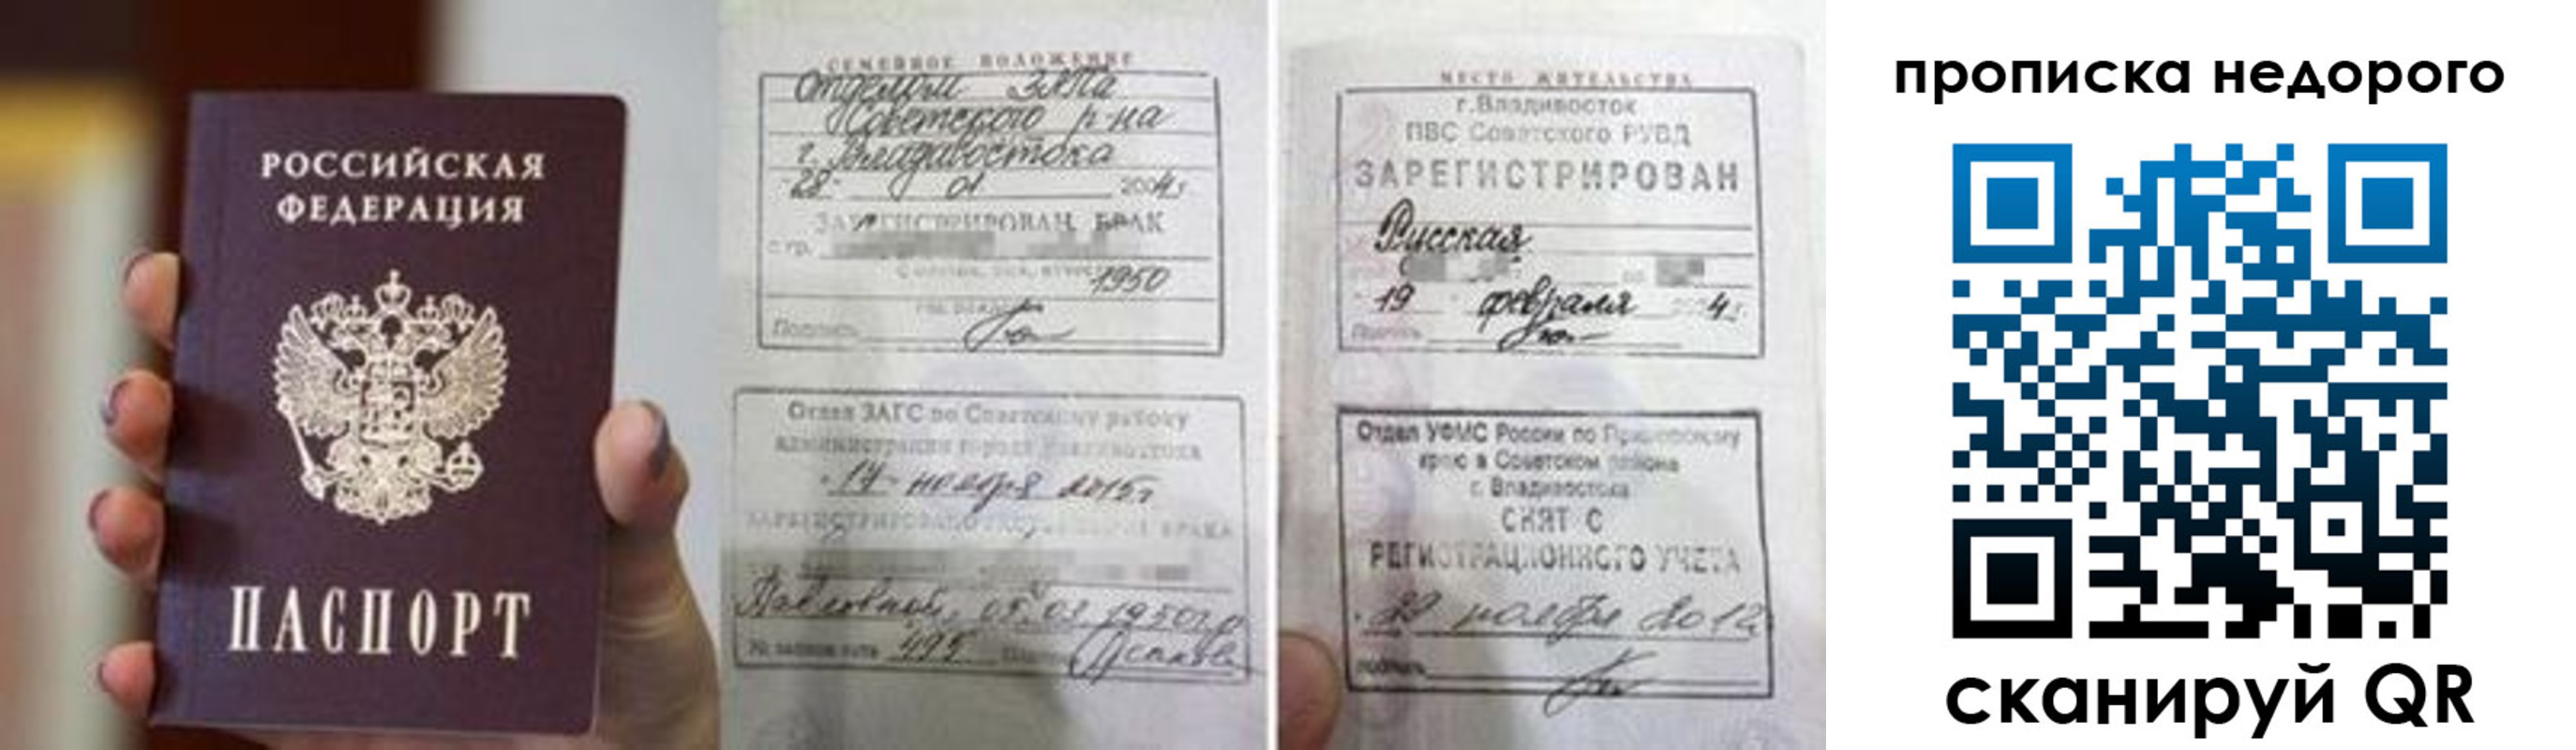 РОССИЙСКАЯ
ФЕДЕРАЦИЯ
ПАСПОРТ
СЕМЕЙНОЕ ПОЛОЖЕНИЕ
Отделом ЗАГСа
Советского р-на
г. Владивостока
"28" 01 2004 г.
ЗАРЕГИСТРИРОВАН БРАК
с гр.
1950
Подпись
Отдел ЗАГС по Советскому району
администрации города Владивостока
"17" ноября 2015 г.
БРАКА
Павловной, 05.03.1950 г.р
№ 495
МЕСТО ЖИТЕЛЬСТВА
г.Владивосток
ПВС Советского РУВД
ЗАРЕГИСТРИРОВАН
Русская
19 февраля 4г.
Подпись
Отдел УФМС России по Приморскому
краю в Советском районе
г. Владивостока
СНЯТ С
РЕГИСТРАЦИОННОГО УЧЕТА
ноября 2012
подпись
прописка недорого
сканируй QR